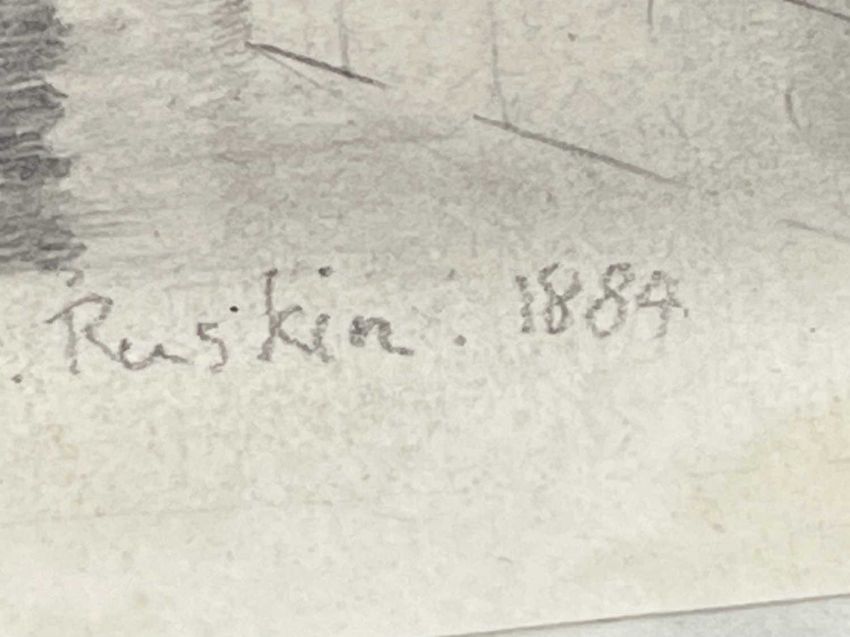 . Ruskin. 1884